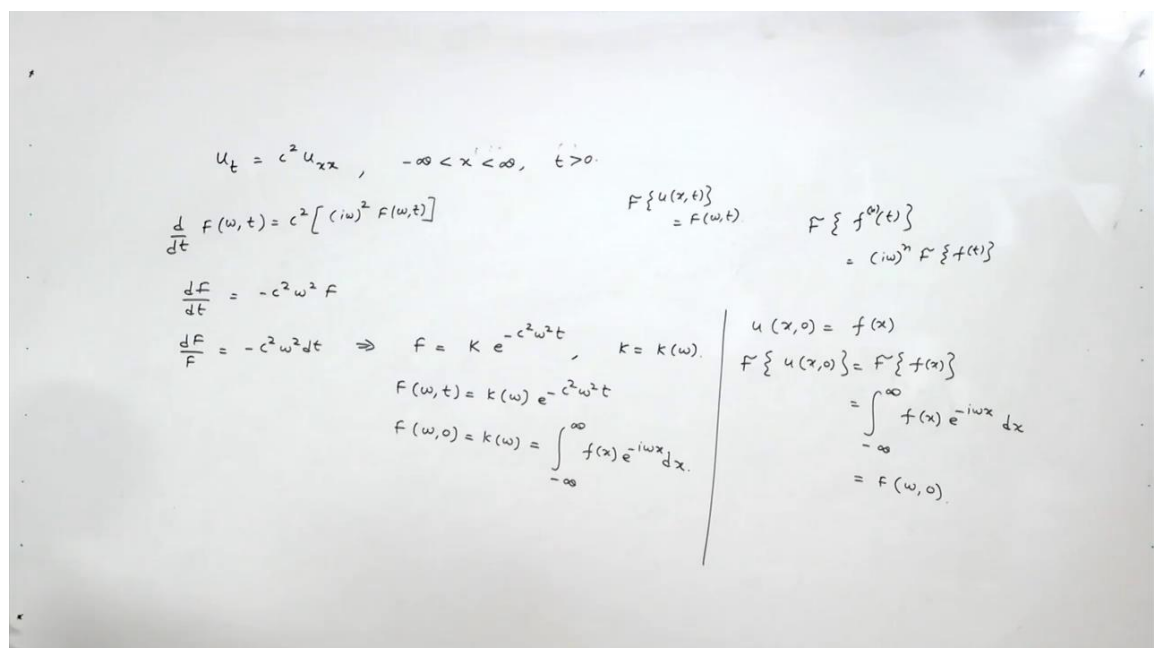 u_t = c² u_xx , -∞ < x < ∞, t > 0.
F{u(x,t)}
= F(ω,t)
F{ f^(n)(t)}
= (iω)^n F{f(t)}
d/dt F(ω,t) = c² [ (iω)² F(ω,t)]
dF/dt = -c²ω² F
dF/F = -c²ω² dt ⇒ F = K e^{-c²ω²t} , K = K(ω).
F(ω,t) = K(ω) e^{-c²ω²t}
F(ω,0) = K(ω) = ∫_{-∞}^{∞} f(x) e^{-iωx} dx.
u(x,0) = f(x)
F{ u(x,0)} = F{ f(x)}
= ∫_{-∞}^{∞} f(x) e^{-iωx} dx
= F(ω,0).